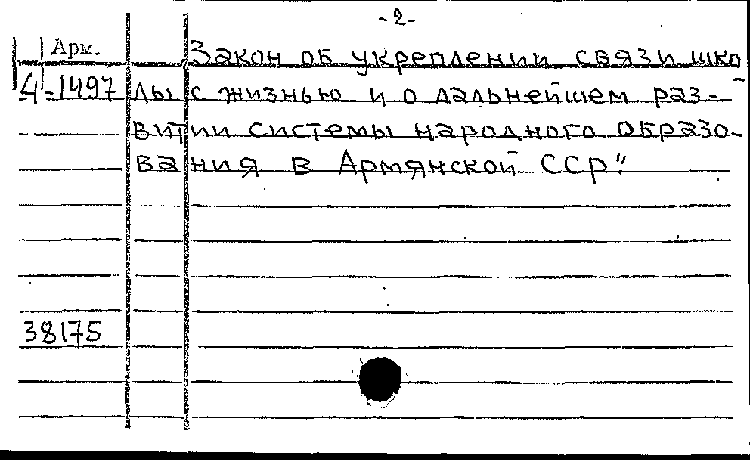 -2-
Арм.
Закон об укреплении связи шко
4-1497 лы с жизнью и о дальнейшем раз-
витии системы народного образо-
вания в Армянской ССР."
38175